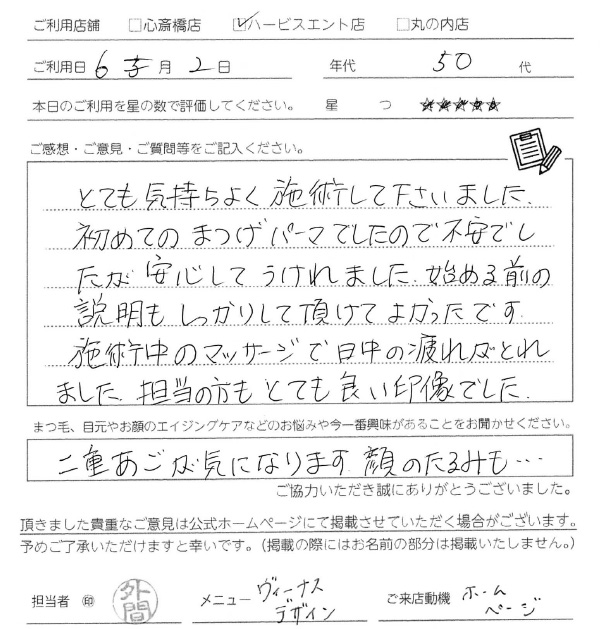 ご利用店舗 □心斎橋店 ☑ハービスエント店 □丸の内店
ご利用日 6 月 2 日 年代 50 代
本日のご利用を星の数で評価してください。 星 つ ★★★★★
ご感想・ご意見・ご質問等をご記入ください。
とても気持ちよく施術して下さいました。
初めてのまつげパーマでしたので不安でし
たが安心してうけれました。始める前の
説明もしっかりして頂けてよかったです
施術中のマッサージで日中の疲れがとれ
ました。担当の方もとても良い印像でした。
まつ毛、目元やお顔のエイジングケアなどのお悩みや今一番興味があることをお聞かせください。
二重あごが気になります。顔のたるみも…
ご協力いただき誠にありがとうございました。
頂きました貴重なご意見は公式ホームページにて掲載させていただく場合がございます。
予めご了承いただけますと幸いです。(掲載の際にはお名前の部分は掲載いたしません。)
担当者 ㊞ 外間 メニュー ヴィーナス ご来店動機 ホーム
デザイン ページ